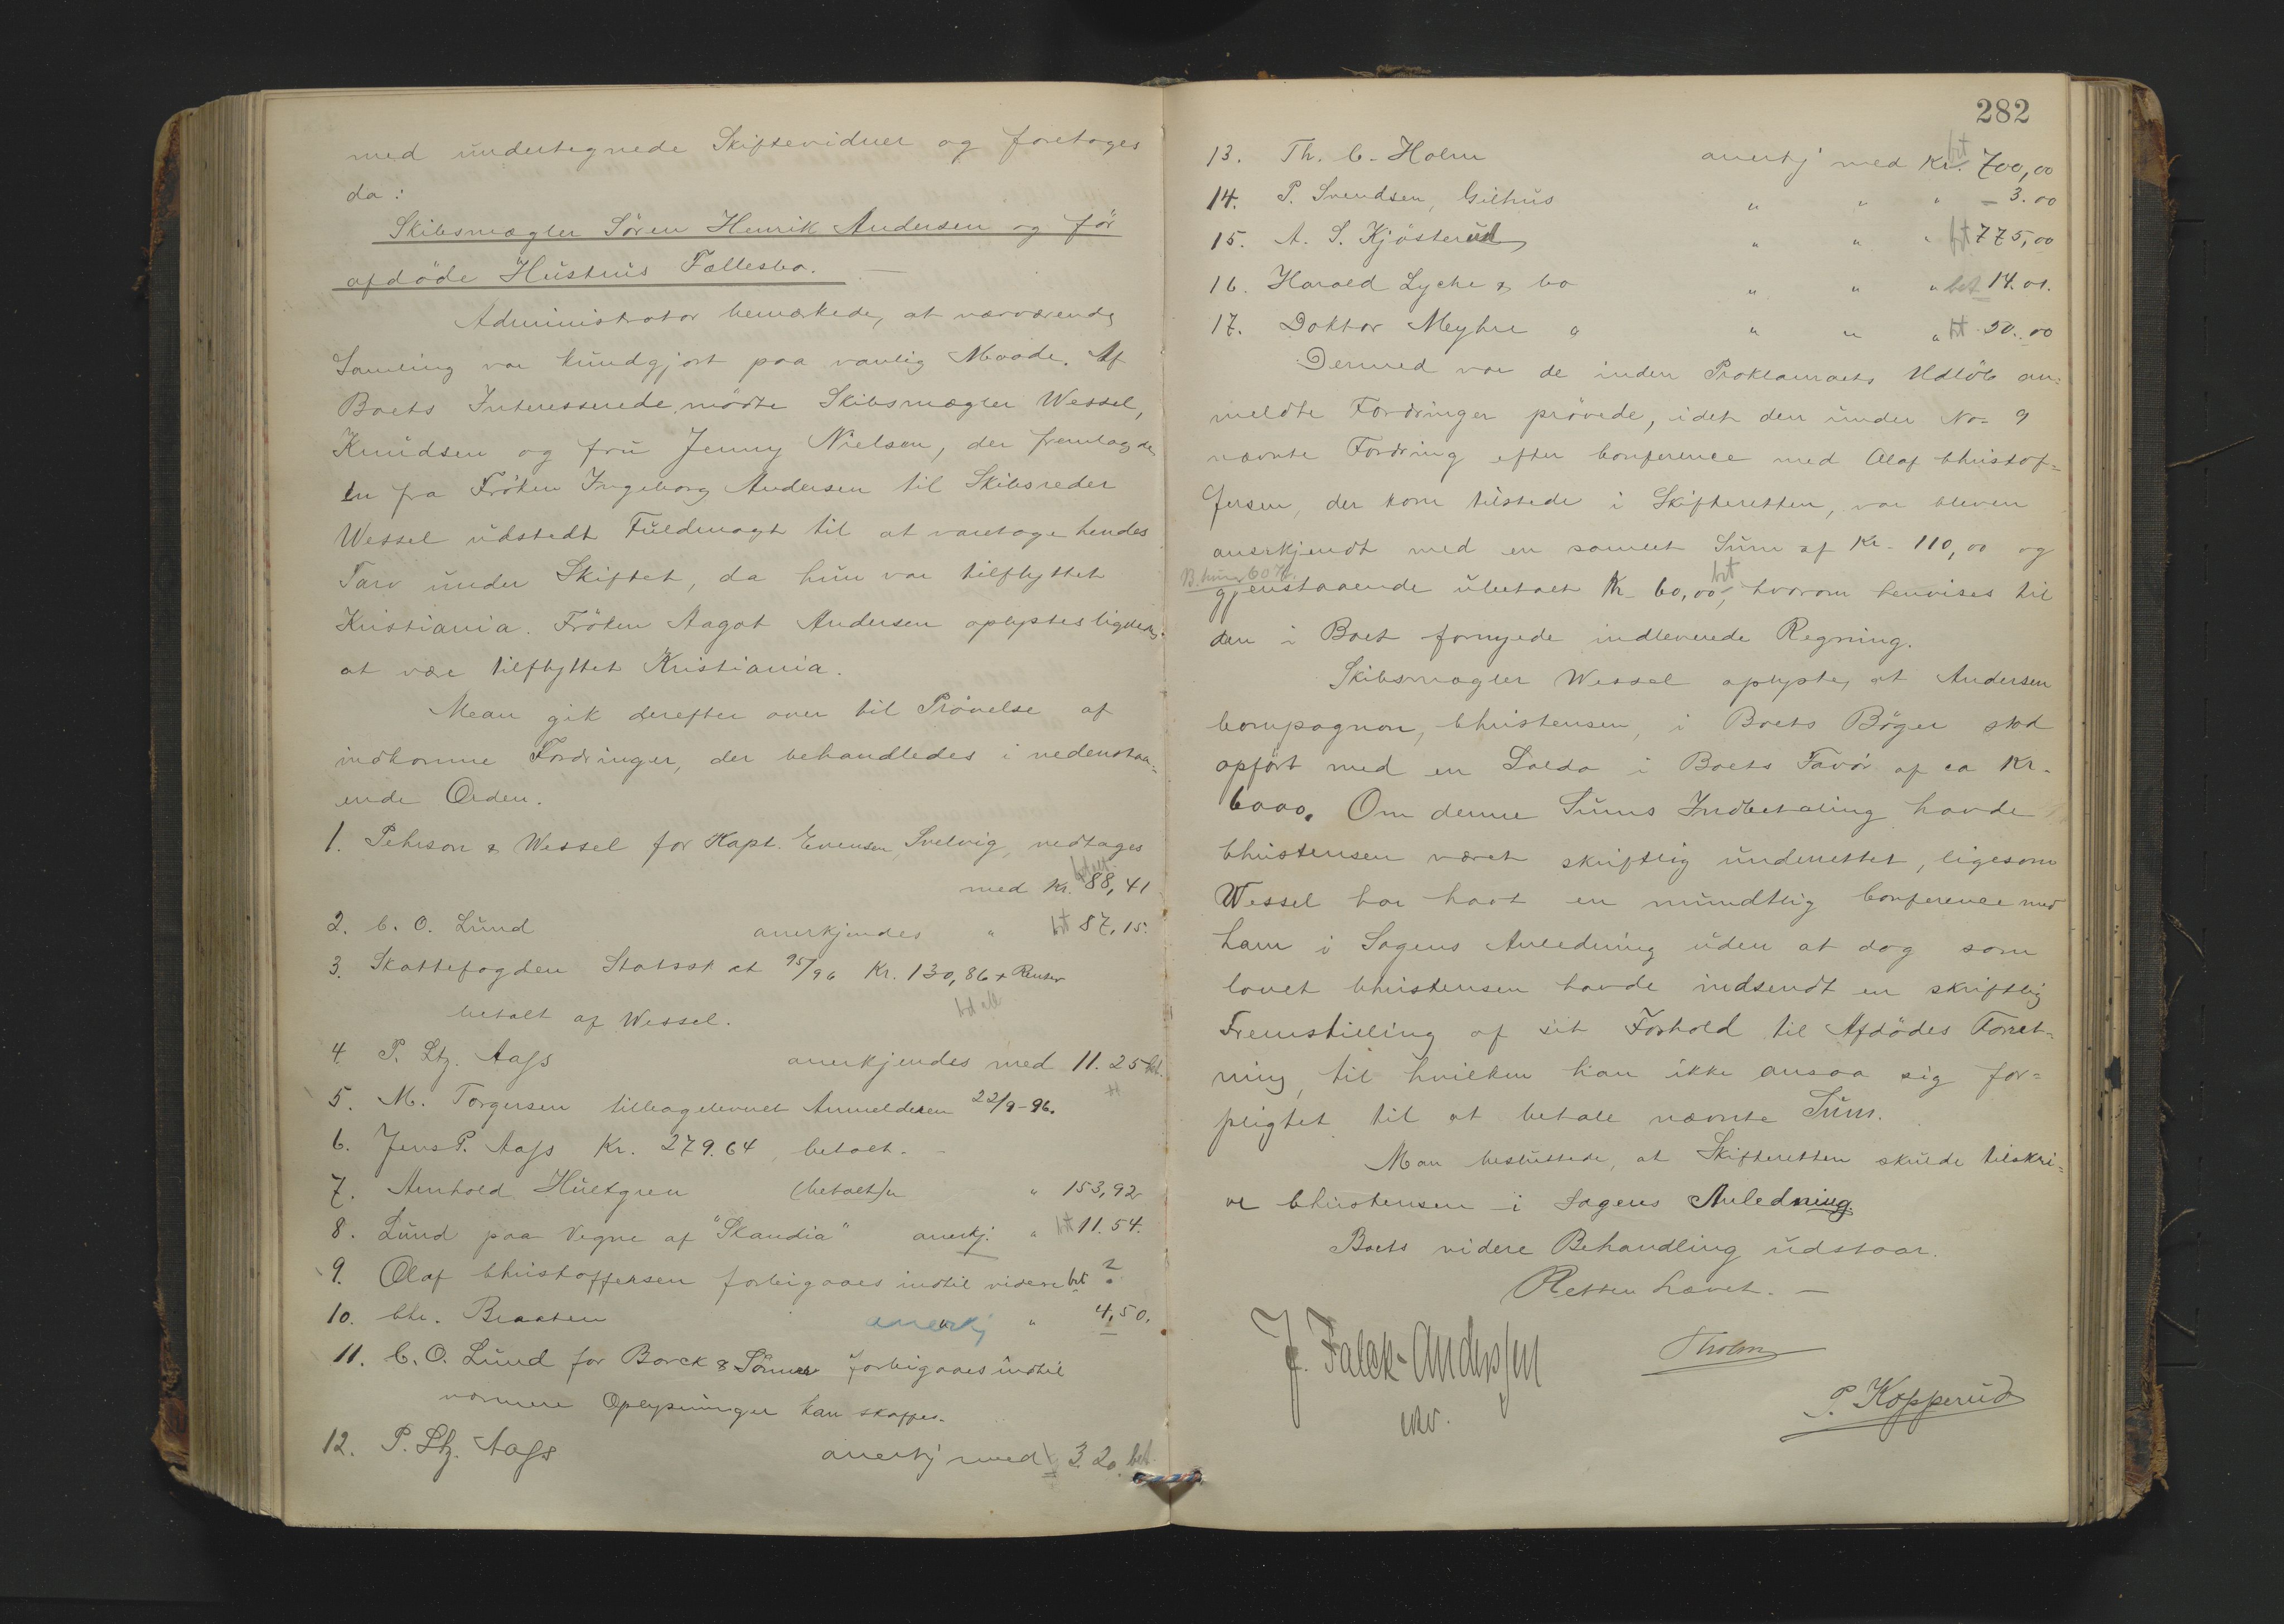 med undertegnede Skiftevidner og foretoges
da:
Skibsmægler Sören Henrik Andersen og för
afdöde Hustrus Fællesbo. —
Administrator bemærkede, at nærværende
Samling var kundgjort paa vanlig Maade. Af
Boets Interesserede mödte Skibsmægler Wessel,
Knudsen og fru Jenny Nielsen, der fremlagde
en fra Fröken Ingeborg Andersen til Skibsreder
Wessel udstedt Fuldmagt til at varetage hendes
Tarv under Skiftet, da hun var tilflyttet
Kristiania. Fröken Aagot Andersen oplystes ligeledes
at være tilflyttet Kristiania.
Man gik derefter over til Prövelse af
indkomne Fordringer, der behandledes i nedenstaa=
ende Orden.
1. Pehrson & Wessel for Kapt. Evensen, Svelvig, vedtages
med Kr. 88,41
2. C. O. Lund anerkjendes " bt 87,15.
3. Skattefogden Statssk at 95/96 Kr. 130,86 + Renter
betalt af Wessel.
4. P. Ltz. Aass anerkjendes med 11.25 bet.
5. M. Torgersen tilbageleveret Anmeldesen 22/9-96.
6. Jens P. Aass Kr. 279.64, betalt. -
7. Arnhold Hultgren (betalt) " " 153,92
8. Lund paa Vegne af "Skandia" anerkj. " bt 11.54.
9. Olaf Christoffersen forbigaaes indtil videre bt ?
10. Chr. Braaten anerkj " 4,50.
11. C. O. Lund for Borck & Sönner forbigaaes indtil
nærmere Oplysninger kan skaffes.
12. P. Ltz. Aass anerkj med 3.20. bet
282
13. Th. C. Holm anerkj med Kr. bt 700,00
14. P. Svendsen, Gilhus " " " - 3.00
15. A. S. Kjösterud " " " bt 775,00
16. Harald Lyche & Co " " " bet 14.01.
17. Doktor Meyhre " " " bt 50.00
Dermed var de inden Proklamaets Udlöb an=
meldte Fordringer prövede, idet den under No. 9
nævnte Fordring efter Conference med Olaf Christof=
fersen, der kom tilstede i Skifteretten, var bleven
anerkjendt med en samlet Sum af Kr. 110,00 og
gjenstaaende ubetalt Kr. 60,00, bt hvorom henvises til
den i Boet fornyede indleverede Regning.
Skibsmægler Wessel oplyste, at Andersen
Compagnon, Christensen, i Boets Böger stod
opfört med en Saldo i Boets Favör af ca Kr.
6000. Om denne Sums Indbetaling havde
Christensen været skriftlig underrettet, ligesom
Wessel har havt en mundtlig Conference med
ham i Sagens Anledning uden at dog som
lovet Christensen havde indsendt en skriftlig
Fremstilling af sit Forhold til Afdödes Forret=
ning, til hvilken han ikke ansaa sig for=
pligtet til at betale nævnte Sum.
Man besluttede, at Skifteretten skulde tilskri=
ve Christensen i Sagens Anledning.
Boets videre Behandling udstaar.
Retten hævet. —
J. Falck-Anderssen
Tholm
P. Kopperud